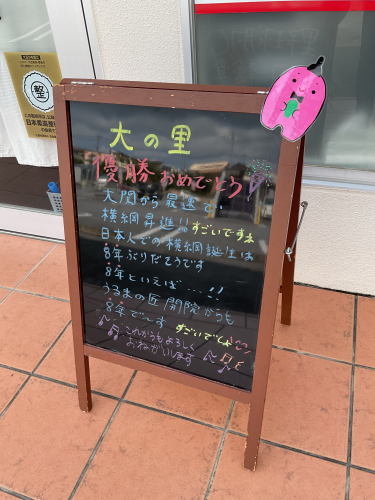 整
大の里
優勝 おめでとう
大関から最速で、
横綱昇進!! すごいですね
日本人での横綱誕生は
8年ぶりだそうです
8年といえば…!!
うるまの匠 開院からも
8年で〜す すごいでしょ
これからもよろしく
おねがいします